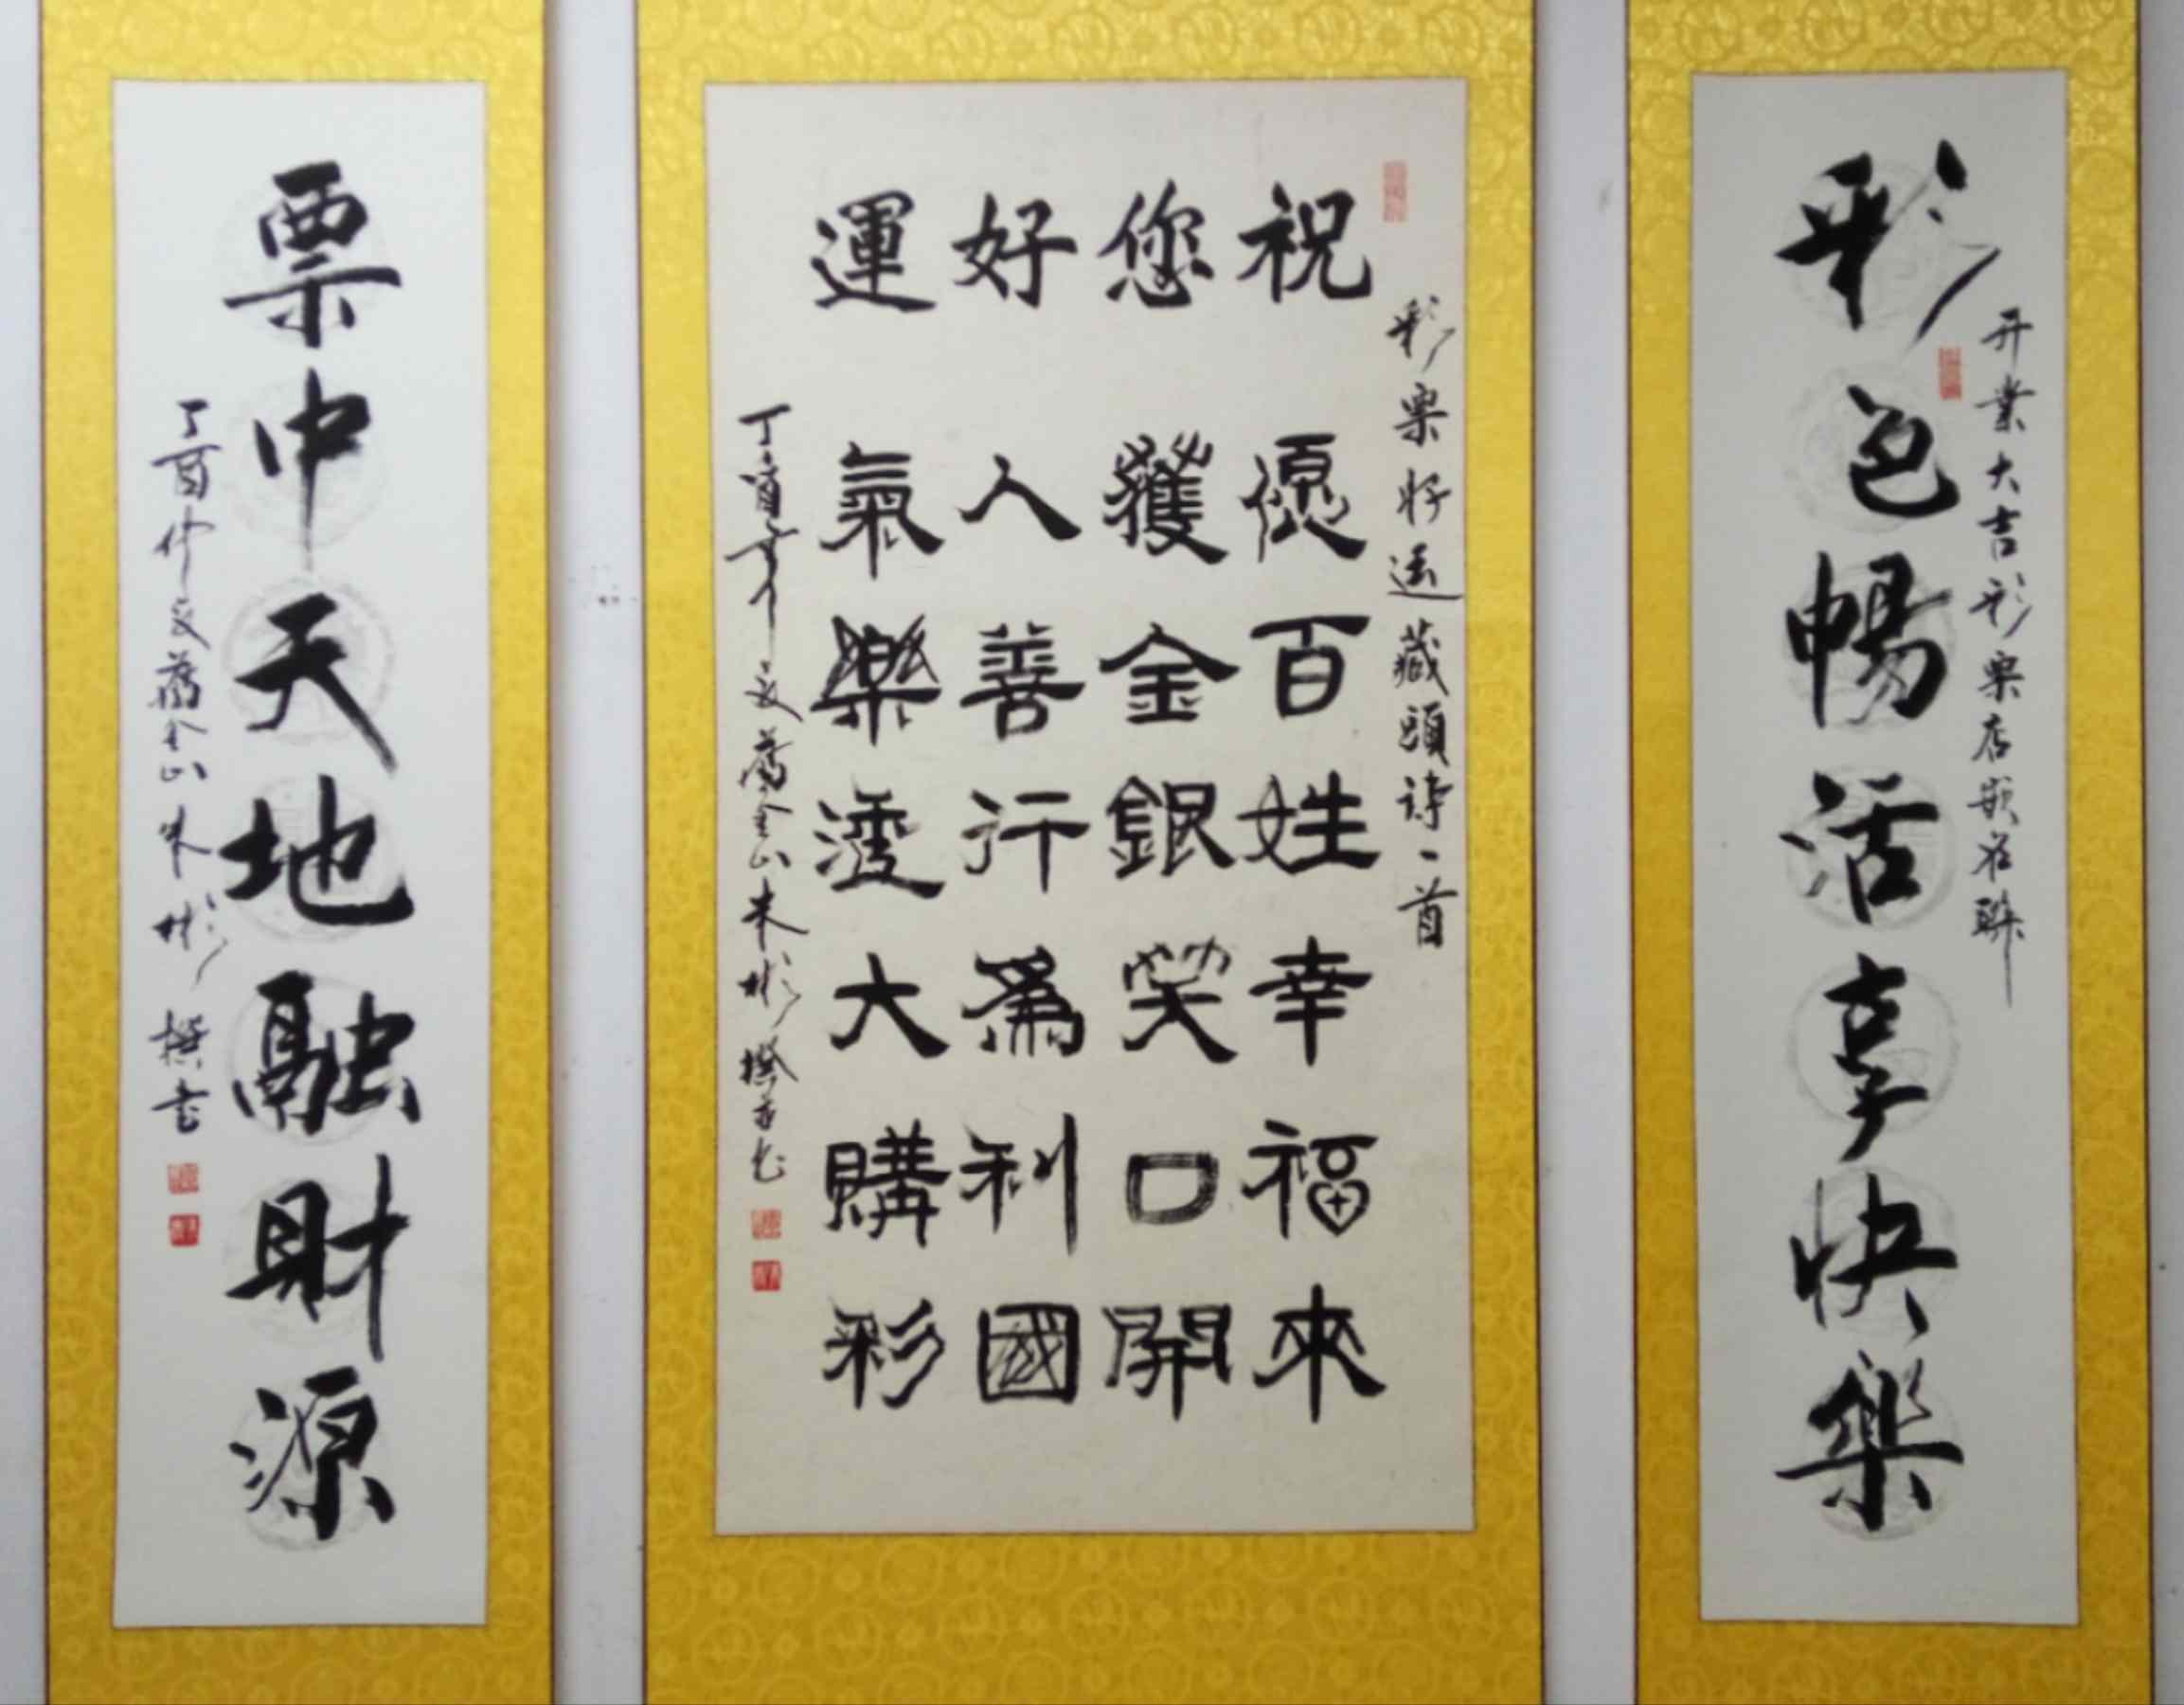 开業大吉彩票店嵌名聯
彩色暢活享快樂
彩票好运藏頭诗一首
祝願百姓幸福來
您獲金銀笑口開
好人善行為利國
運氣樂透大購彩
丁酉年夏舊金山朱彬撰并书
票中天地融財源
丁酉仲夏舊金山朱彬撰书